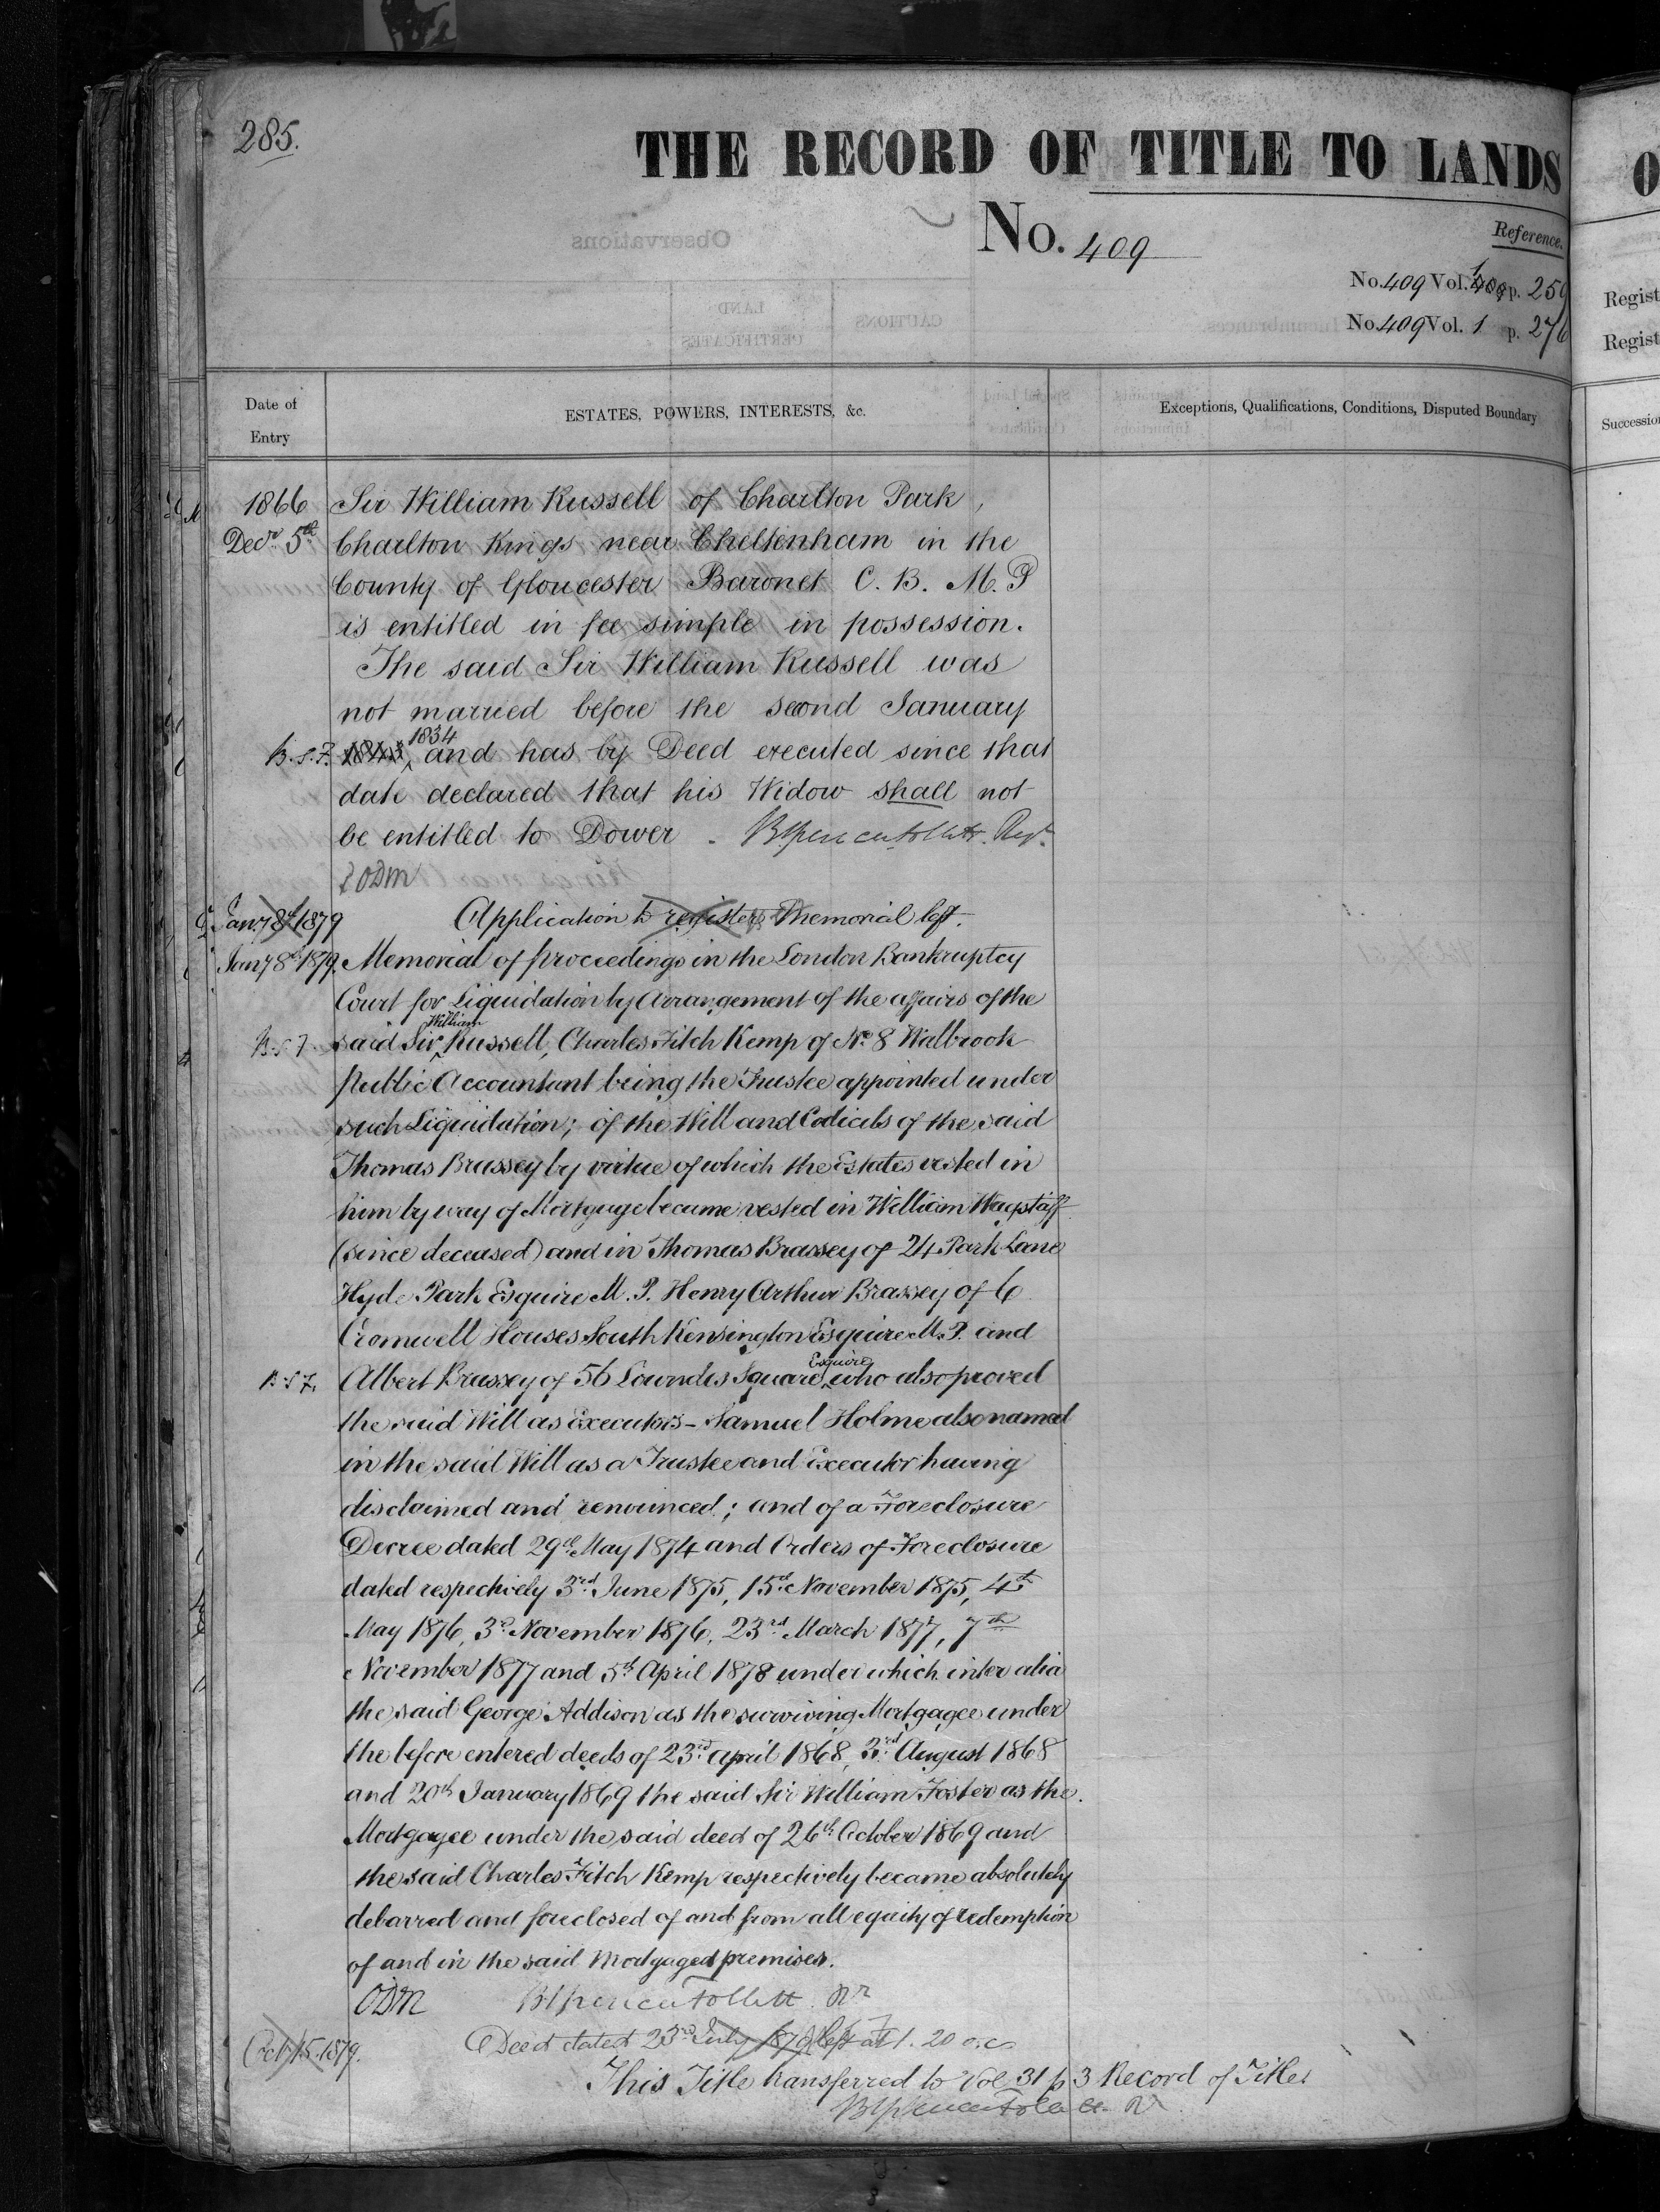 285.
THE RECORD OF TITLE TO LANDS
No. 409
Reference.
No. 409 Vol. 1 p. 259
No. 409 Vol. 1 p. 276
Date of Entry
ESTATES, POWERS, INTERESTS, &c.
Exceptions, Qualifications, Conditions, Disputed Boundary
1866 Sir William Russell of Charlton Park,
Decr. 5th Charlton Kings near Cheltenham in the
County of Gloucester Baronet C. B. M. P
is entitled in fee simple in possession.
The said Sir William Russell was
not married before the second January
B.S.F. 1843 1834 and has by Deed executed since that
date declared that his Widow shall not
be entitled to Dower. B Spencer Follett. Regr.
ODM
Jany 8th 1879 Application to register Memorial left.
Jany 8th 1879. Memorial of proceedings in the London Bankruptcy
Court for Liquidation by Arrangement of the affairs of the
B.S.F. said Sir William Russell, Charles Fitch Kemp of No. 8 Walbrook
Public Accountant being the Trustee appointed under
such Liquidation; of the Will and Codicils of the said
Thomas Brassey by virtue of which the Estates vested in
him by way of Mortgage became vested in William Wagstaff
(since deceased) and in Thomas Brassey of 24 Park Lane
Hyde Park Esquire M. P. Henry Arthur Brassey of 6
Cromwell Houses South Kensington Esquire M. P. and
B.S.F. Albert Brassey of 56 Lowndes Square Esquire who also proved
the said Will as Executors - Samuel Holme also named
in the said Will as a Trustee and Executor having
disclaimed and renounced; and of a Foreclosure
Decree dated 29th May 1874 and Orders of Foreclosure
dated respectively 3rd June 1875, 15th November 1875, 4th
May 1876, 3rd November 1876, 23rd March 1877, 7th
November 1877 and 5th April 1878 under which inter alia
the said George Addison as the surviving Mortgagee under
the before entered deeds of 23rd april 1868, 3rd August 1868
and 20th January 1869 the said Sir William Foster as the
Mortgagee under the said deed of 26th October 1869 and
the said Charles Fitch Kemp respectively became absolutely
debarred and foreclosed of and from all equity of redemption
of and in the said Mortgaged premises.
ODM B Spencer Follett Rr
Oct. 15. 1879. Deed dated 23rd July 1879 left at 1. 20 o.c
This Title transferred to Vol 31 p 3 Record of Titles
B Spencer Follett Rr
O
Regist
Regist
Succession